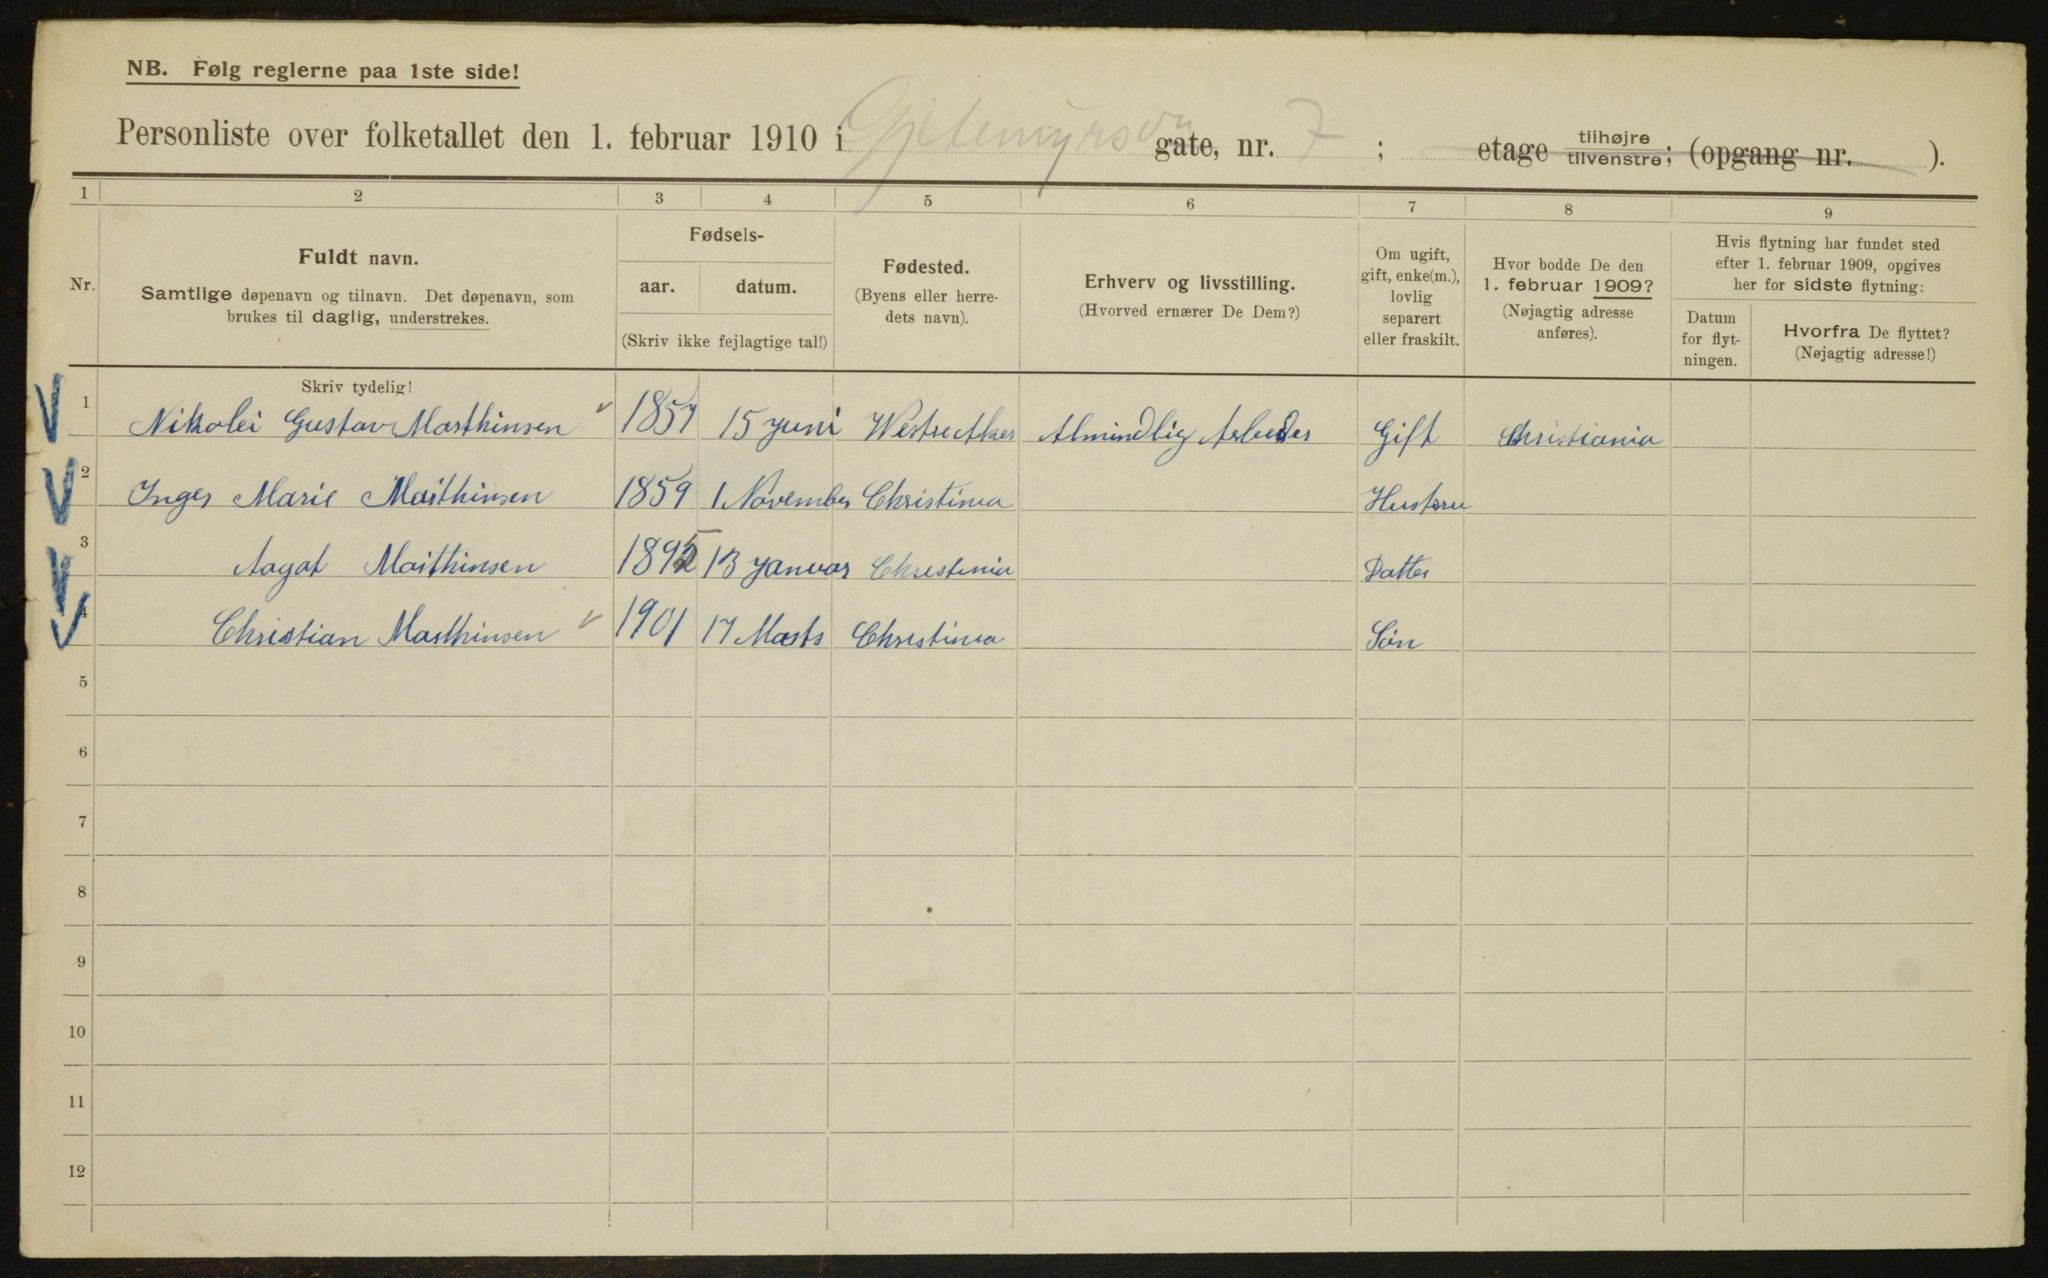 NB. Følg reglerne paa 1ste side!
Personliste over folketallet den 1. februar 1910 i Gjetemyrsvn gate, nr. 7 ; etage tilhøjre tilvenstre; (opgang nr. ).
1 2 3 4 5 6 7 8 9
Nr.
Fuldt navn.
Samtlige døpenavn og tilnavn. Det døpenavn, som
brukes til daglig, understrekes.
Skriv tydelig!
Fødsels-
aar. datum.
(Skriv ikke fejlagtige tal!)
Fødested.
(Byens eller herre-
dets navn).
Erhverv og livsstilling.
(Hvorved ernærer De Dem?)
Om ugift,
gift, enke(m.),
lovlig
separert
eller fraskilt.
Hvor bodde De den
1. februar 1909?
(Nøjagtig adresse
anføres).
Hvis flytning har fundet sted
efter 1. februar 1909, opgives
her for sidste flytning:
Datum
for flyt-
ningen.
Hvorfra De flyttet?
(Nøjagtig adresse!)
1 Nikolei Gustav Marthinsen 1857 15 Juni Westre Aker Almindlig Arbeider Gift Christiania
2 Inger Marie Marthinsen 1859 1 November Christinia Hustru
3 Aagot Marthinsen 1895 13 Januar Christinia Datter
4 Christian Marthinsen 1901 17 Marts Christinia Søn
5
6
7
8
9
10
11
12